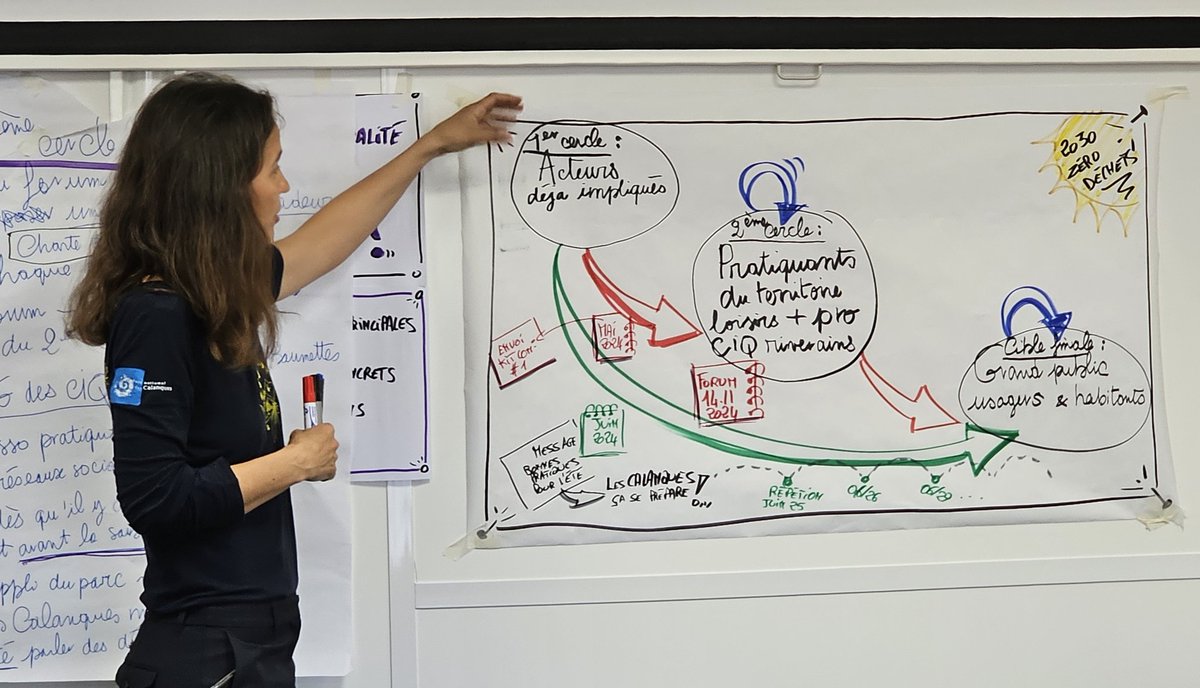 cercle
forum
un
Charte
haque
du 2
G des CiQ
sso pratiqu
réseaux socia
dès qu'il y
t avant la sai
ppli du parc
Calanques
parler des d
ALITÉ
RINCIPALES
CRETS
national
Calanques
1er cercle :
Acteurs
déja impliqués
2ème cercle :
Pratiquants
du territoire
loisirs + pro
CiQ riverains
Cible finale :
Grand public
usagers & habitants
2030
ZÉRO
DECHETS!
ENVOI
KIT COM
#1
MAI
2024
FORUM
14.11
2024
JUIN
2024
MESSAGE
BONNES
PRATIQUES
POUR L'ÉTÉ
LES CALANQUES
ÇA SE PRÉPARE
RÉPÉTITION
JUIN 25
06/26